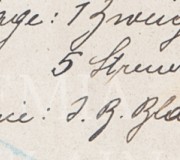 age: 1 Zweig
5 Streu
ie: J. B. Bla